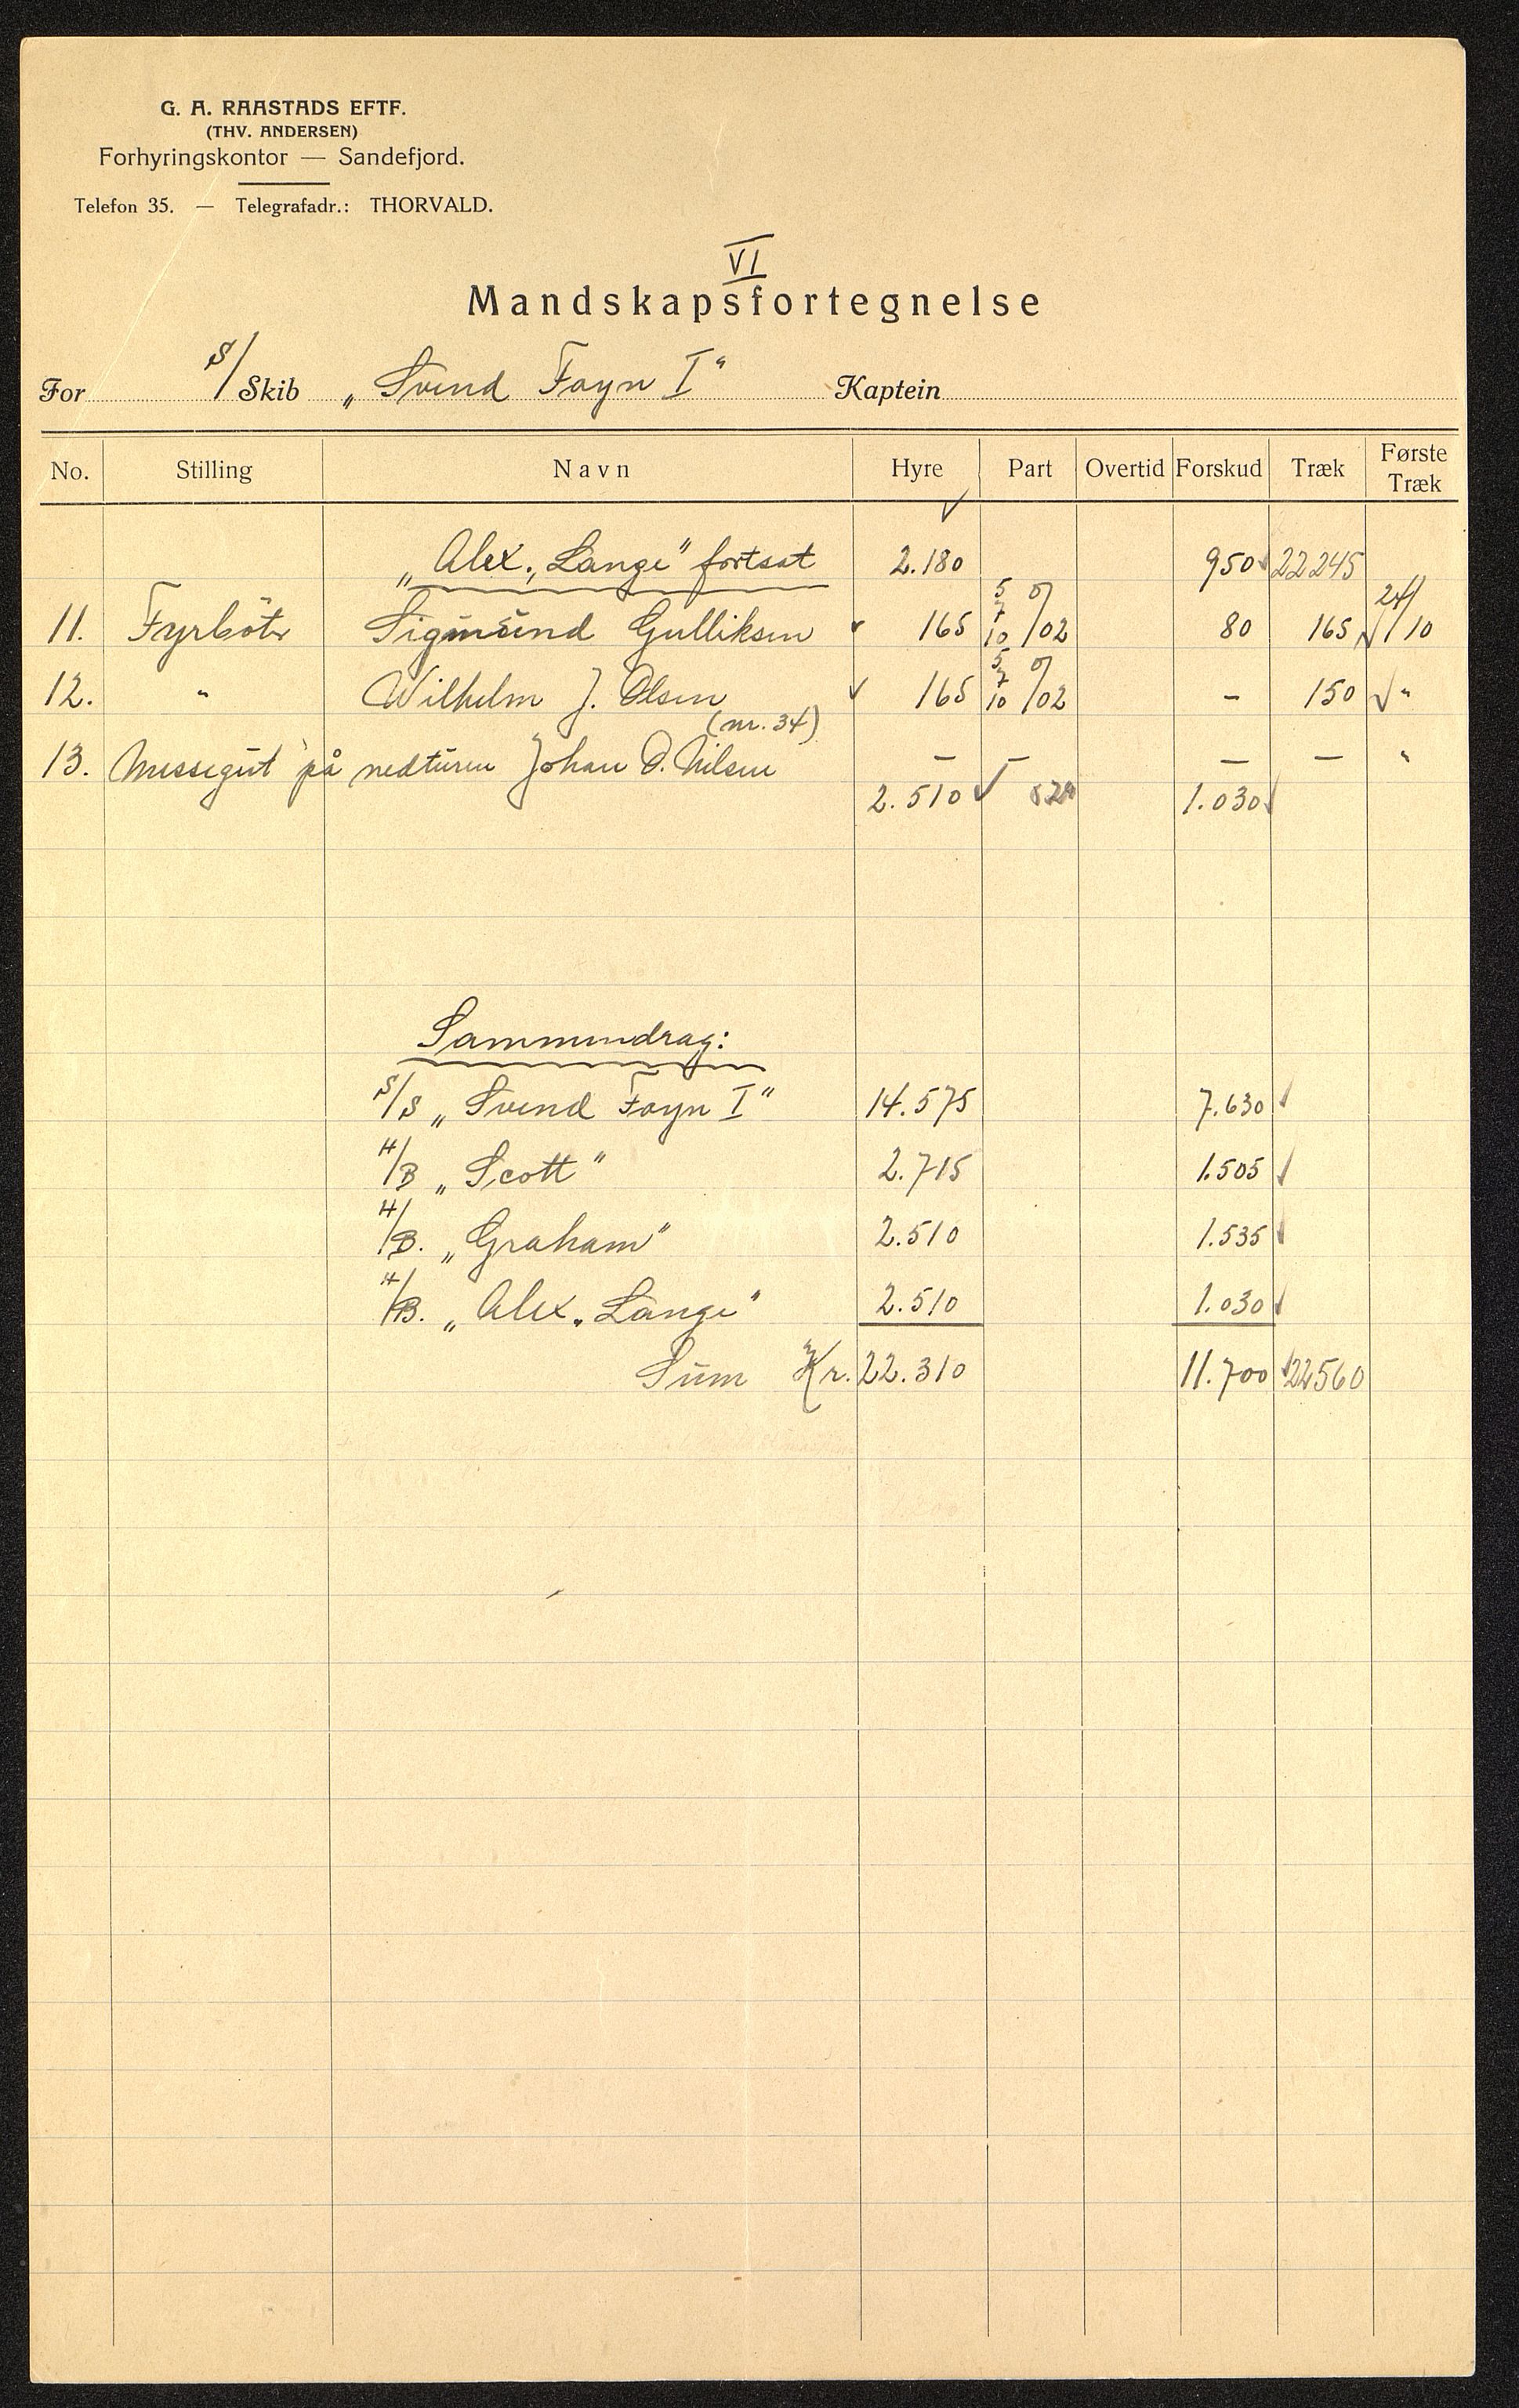 G. A. RAASTADS EFTF.
(THV. ANDERSEN)
Forhyringskontor — Sandefjord.
Telefon 35. — Telegrafadr.: THORVALD.
VI
Mandskapsfortegnelse
For S/Skib „Svend Foyn I" Kaptein
No. Stilling Navn Hyre Part Overtid Forskud Træk Første Træk
„Alex. Lange" fortsat 2.180 950 22245
11. Fyrbøter Sigmund Gulliksen 165 5 7 10 /02 80 165 24/10
12. " Wilhelm J. Olsen 165 5 7 10 /02 - 150 "
(nr. 34)
13. Messegut på nedturen Johan O. Nilsen — — — — "
2.510 1.030
Sammendrag:
S/S „Svend Foyn I" 14.575 7.630
H/B „Scott" 2.715 1.505
H/B. „Graham" 2.510 1.535
H/B. „Alex. Lange" 2.510 1.030
Sum Kr. 22.310 11.700 22560